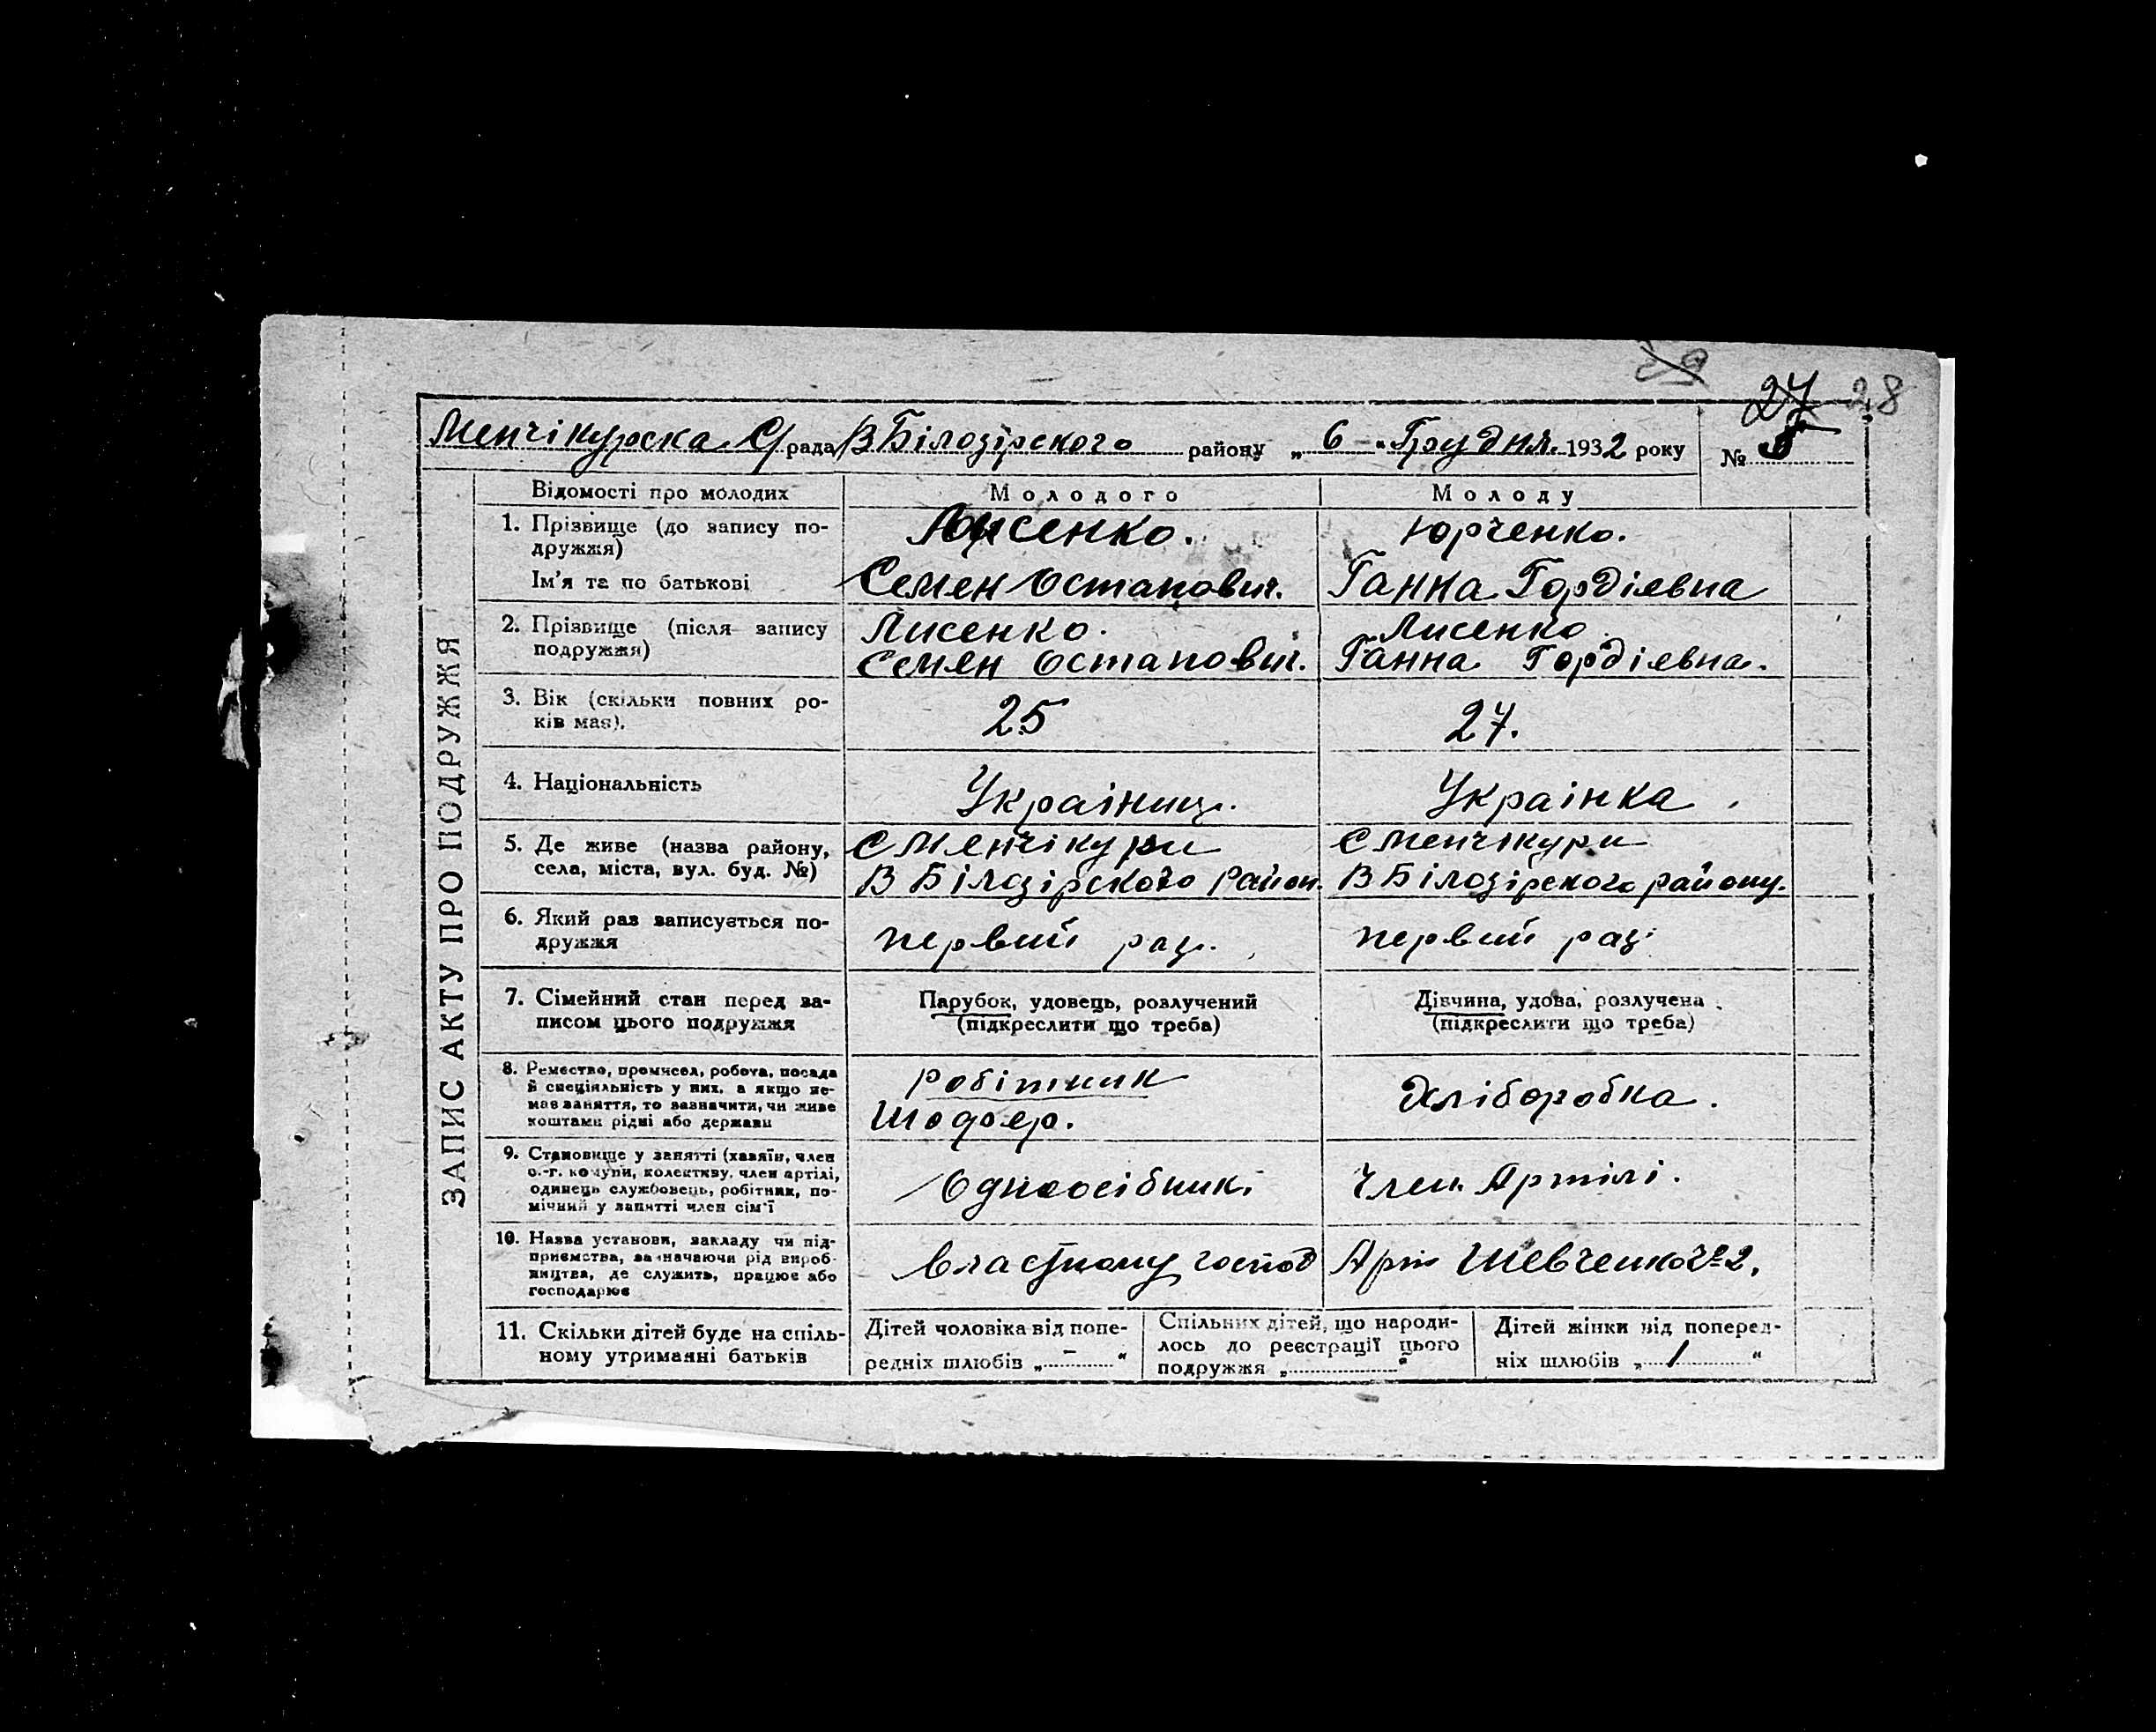 27 28
Менчікурска С/рада В Білозірского району „ 6 " Грудня. 1932 року № 5
ЗАПИС АКТУ ПРО ПОДРУЖЖЯ
Відомості про молодих Молодого Молоду
1. Прізвище (до запису по- Лисенко. Юрченко.
дружжя)
Ім'я та по батькові Семен Остапович. Ганна Гордіевна
2. Прізвище (після запису Лисенко. Лисенко.
подружжя) Семен Остапович. Ганна Гордіевна.
3. Вік (скільки повних ро- 25 27.
ків має).
4. Національність Украіниц. Украінка.
5. Де живе (назва району, С Менчікури С Менчікури
села, міста, вул. буд. №) В Білозірского Район. В Білозірского району.
6. Який раз записується по- первий раз. первий раз.
дружжя
7. Сімейний стан перед за- Парубок, удовець, розлучений Дівчина, удова, розлучена
писом цього подружжя (підкреслити що треба) (підкреслити що треба)
8. Ремество, промисел, робота, посада робітник Хліборобка.
й спеціяльність у них, а якщо не- Шофьер.
має заняття, то зазначити, чи живе
коштами рідні або держави
9. Становище у занятті (хазяїн, член Одноосібник. Член Артілі.
с.-г. комуни, колективу, член артілі,
одинець службовець, робітник, по-
мічний у занятті член сім'ї
10. Назва установи, закладу чи під- власному господ Арт Шевченко № 2.
приємства, зазначаючи рід вироб-
ництва, де служить, працює або
господарює
11. Скільки дітей буде на спіль- Дітей чоловіка від попе- Спільних дітей, що народи- Дітей жінки від поперед-
ному утриманні батьків редніх шлюбів „ - " лось до реєстрації цього ніх шлюбів „ 1 "
подружжя „ "